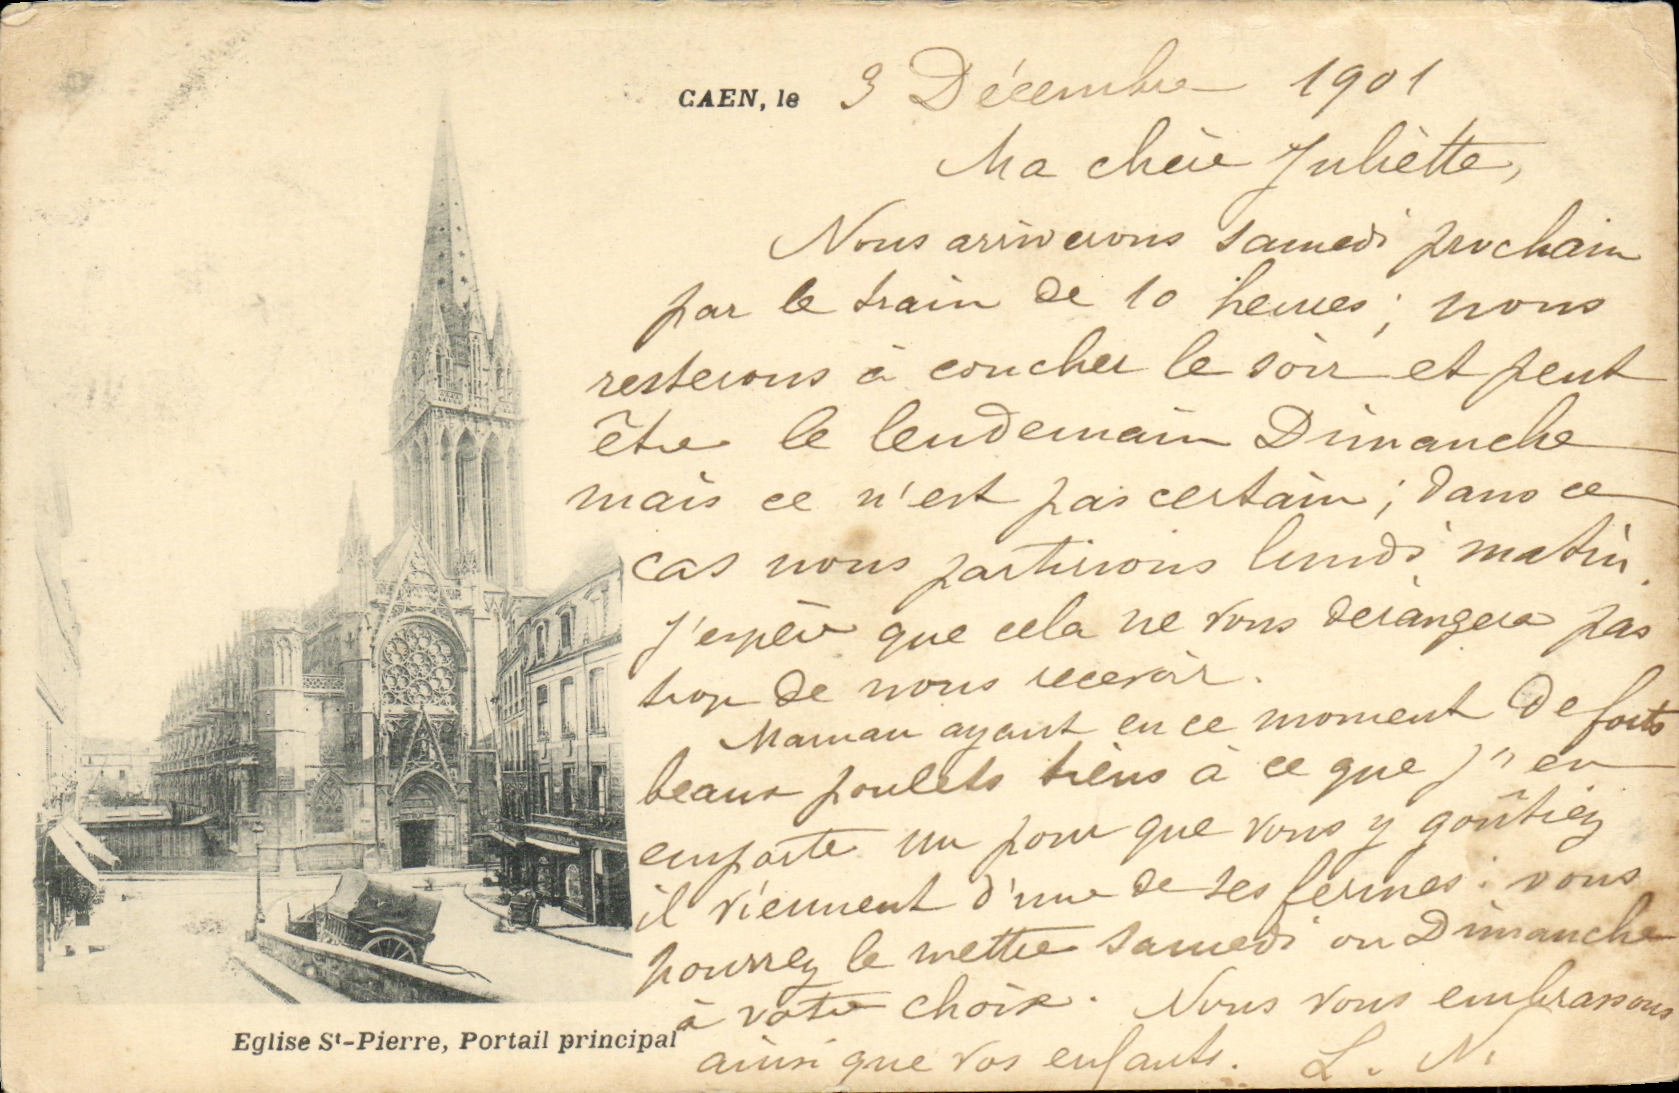 CAEN, le 3 Décembre 1901
Ma chère Juliètte,
Nous arriverons samedi prochain
par le train de 10 heures ; nous
resterons à coucher le soir et peut
être le lendemain Dimanche
mais ce n'est pas certain ; dans ce
cas nous partirons lundi matin.
J'espère que cela ne vous dérangera pas
trop de nous recevoir.
Maman ayant en ce moment de forts
beaux poulets tiens à ce que j'en
emporte un pour que vous y goûtiez
il viennent d'une de ses fermes : vous
pourrez le mettre samedi ou Dimanche
à votre choix. Nous vous embrassons
ainsi que vos enfants. L. N.
Eglise St-Pierre, Portail principal